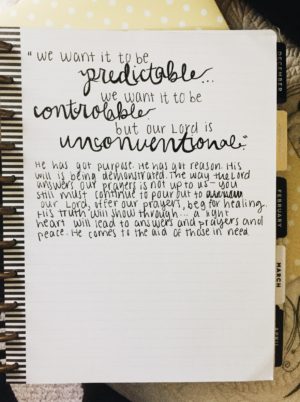 "we want it to be
predictable...
we want it to be
controllable
but our Lord is
unconventional."
He has got purpose. He has got reason. His
will is being demonstrated. The way the Lord
answers our prayers is not up to us - you
still must continue to pour out to
our Lord, offer our prayers, beg for healing.
His truth will show through... a light
heart will lead to answers and prayers and
peace. He comes to the aid of those in need
DECEMBER
FEBRUARY
MARCH
APRIL